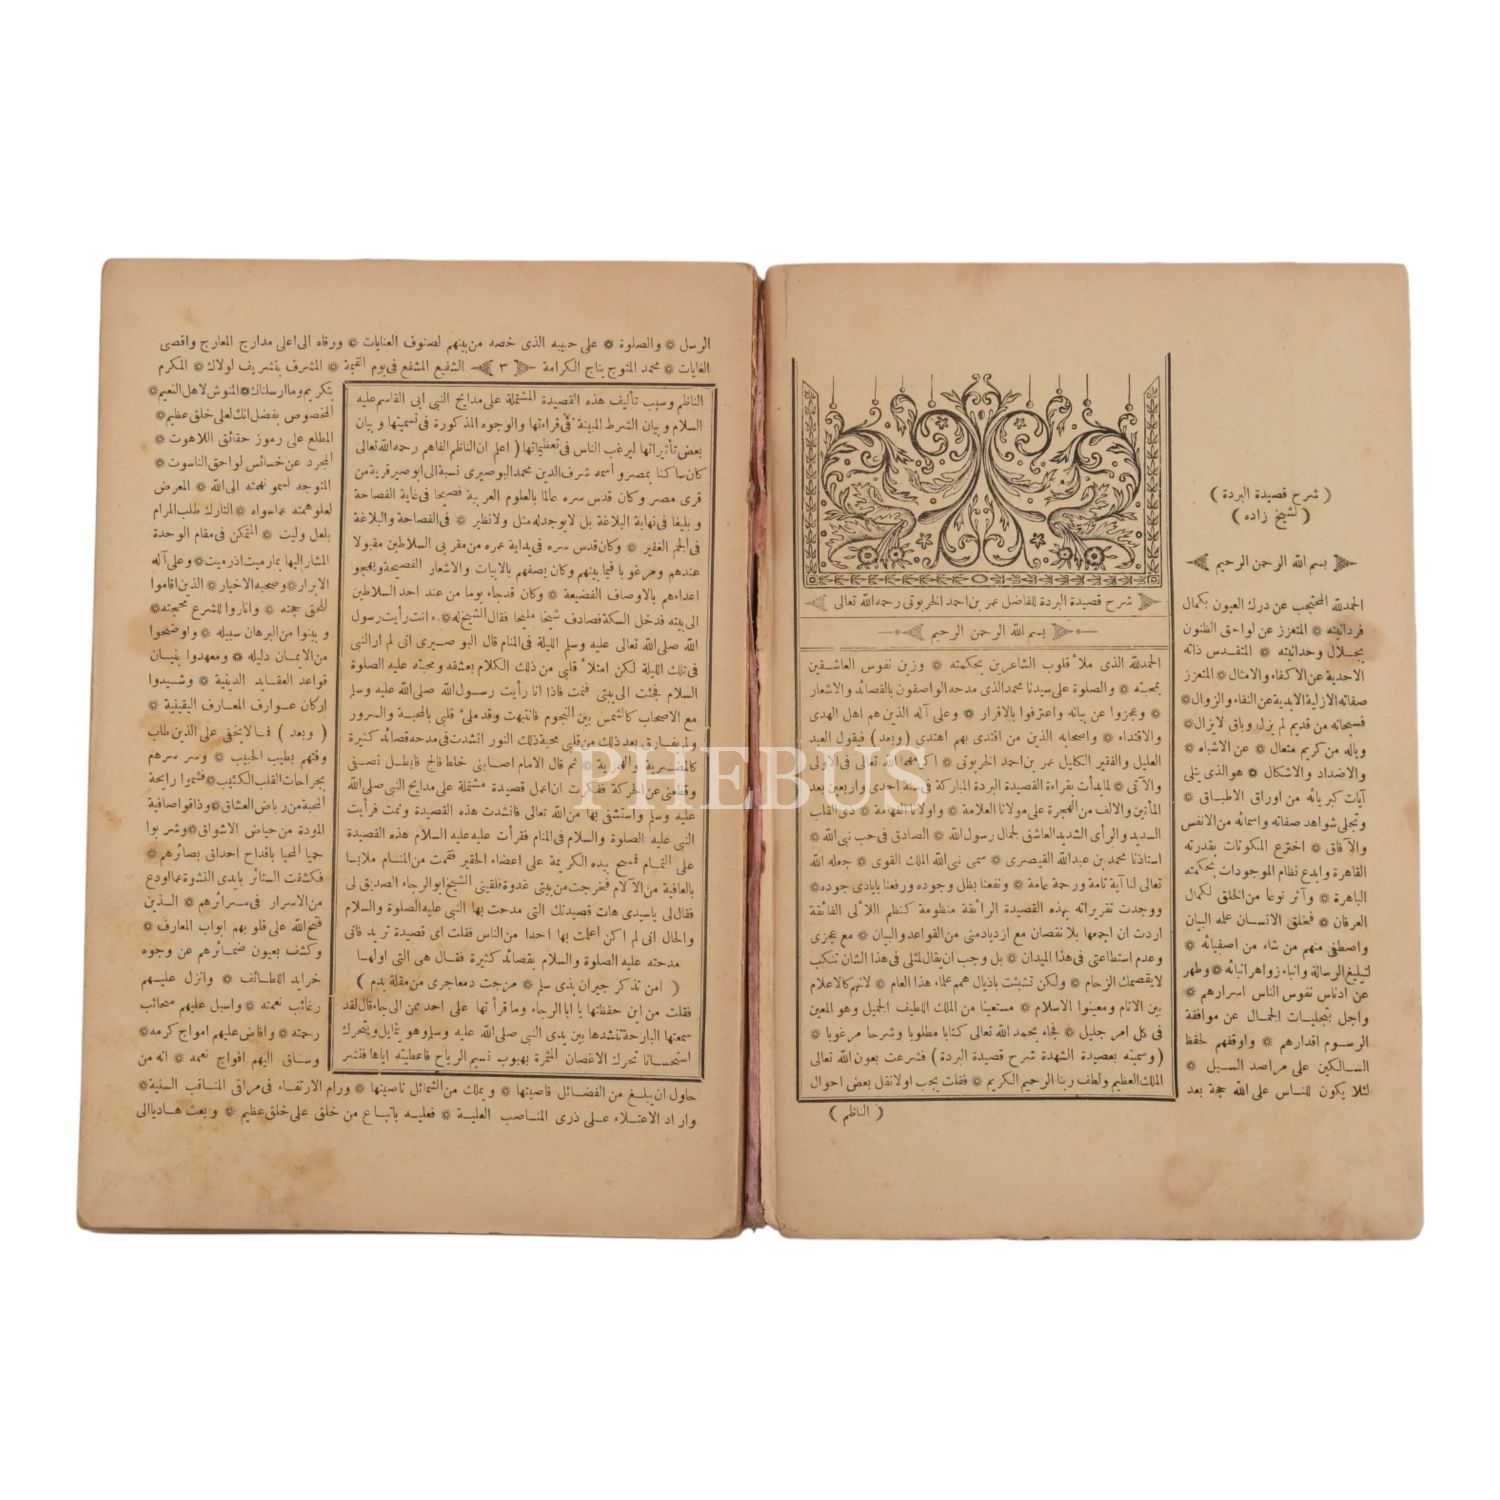 ( شرح قصيدة البردة )
( لشيخ زاده )
بسم الله الرحمن الرحيم
الحمدلله المحتجب عن درك العيون بكمال
فردانيته * المتعزز عن لواحق الظنون
بجلال وحدانيته * المتقدس ذاته
الاحدية عن الاكفاء والامثال * المتعزز
صفاته الازلية الابدية عن الفناء والزوال *
فسبحانه من قديم لم يزل وباق لا يزال *
وياله من كريم متعال * عن الاشباه *
والاضداد والاشكال * هو الذى يتلى
آيات كبريائه من اوراق الاطباق *
وتجلى شواهد صفاته واسمائه من الانفس
والآفاق * اخترع المكونات بقدرته
القاهرة وابدع نظام الموجودات بحكمته
الباهرة * وآثر نوعا من الخلق لكمال
العرفان * فخلق الانسان علمه البيان
واصطفى منهم من شاء من اصفيائه *
لتبليغ الرسالة وانباء زواهر انبائه * وطهر
عن ادناس نفوس الناس اسرارهم *
واجل بتجليات الجمال عن موافقة
الرسوم اقدارهم * واوقفهم لحفظ
السالكين على مراصد السبل *
لئلا يكون للناس على الله حجة بعد
شرح قصيدة البردة للفاضل عمر بن احمد الخربوتى رحمه الله تعالى
بسم الله الرحمن الرحيم
الحمدلله الذى ملأ قلوب الشاعرين بحكمته * وزين نفوس العاشقين
بمحبته * والصلوة على سيدنا محمد الذى مدحه الواصفون بالقصائد والاشعار
* وعجزوا عن بيانه واعترفوا بالاقرار * وعلى آله الذين هم اهل الهدى
والاقتداء * واصحابه الذين من اقتدى بهم اهتدى ( وبعد ) فيقول العبد
العليل والفقير الكليل عمر بن احمد الخربوتى * اكرمهما الله تعالى فى الاولى
والآتى * لما بدأت بقراءة القصيدة البردة المباركة فى سنة احدى واربعين بعد
المأتين والالف من الهجرة على مولانا العلامة * واولانا الفهامة * ذى القلب
السديد والرأى الشديد العاشق لجمال رسول الله * الصادق فى حب نبى الله *
استاذنا محمد بن عبدالله القيصرى * سمى نبى الله الملك القوى * جعله الله
تعالى لنا آية تامة ورحمة عامة * ونفعنا بظل وجوده ورفعنا بايادى جوده *
ووجدت تقريراته بهذه القصيدة الرائقة منظومة كنظم اللآلى الفائقة
اردت ان اجمعها بلا نقصان مع ازدياد منى من القواعد والبيان * مع عجزى
وعدم استطاعتى فى هذا الميدان * بل وجب ان يقال لمثلى فى هذا الشان تنكب
لا يقصمك الزحام * ولكن تشبثت باذيال همم علماء هذا العام * لانهم كالاعلام
بين الانام ومعينوا الاسلام * مستعينا من الملك اللطيف الجميل وهو المعين
فى كل امر جليل * فجاء بحمد الله تعالى كتابا مطلوبا وشرحا مرغوبا *
( وسميته بعصيدة الشهدة شرح قصيدة البردة ) فشرعت بعون الله تعالى
الملك العظيم ولطف ربنا الرحيم الكريم * فقلت يجب اولا نقل بعض احوال
( الناظم )
الرسل * والصلوة * على حبيبه الذى خصه من بينهم لصنوف العنايات * ورقاه الى اعلى مدارج المعارج واقصى
الغايات * محمد المتوج بتاج الكرامة ٣ الشفيع المشفع فى يوم القيمة * المشرف بتشريف لولاك * المكرم
بتكريم وما ارسلناك * المنوش لاهل النعيم *
المخصوص بفضل انك لعلى خلق عظيم *
المطلع على رموز حقائق اللاهوت *
المجرد عن خسائس لواحق الناسوت *
المتوجه لسمو نهمته الى الله * المعرض
لعلو همته عما سواه * التارك طلب المرام
بلعل وليت * المتمكن فى مقام الوحدة
المشار اليها بما رميت اذ رميت * وعلى آله
الابرار * وصحبه الاخيار * الذين اقاموا
للحق حجته * واناروا للشرع محجته *
وبينوا من البرهان سبيله * واوضحوا
من الايمان دليله * ومهدوا بنيان
قواعد العقايد الدينية * وشيدوا
اركان عوارف المعارف اليقينية *
( وبعد ) فما لا يخفى على الذين طاب
وقتهم بطيب الحبيب * وسر سرهم
بجراحات القلب الكئيب * فشموا رايحة
المحبة من رياض العشاق * وذاقوا صافية
المودة من حياض الاشواق * وشربوا
حميا المحيا باقداح احداق بصائرهم *
فكشفت الستائر بايدى النشوة عما اودع
من الاسرار فى سرائرهم * الذين
فتح الله على قلوبهم ابواب المعارف *
وكشف بعيون ضمائرهم عن وجوه
خرايد اللطائف * وانزل عليهم
رغائب نعمته * واسبل عليهم سحائب
رحمته * وافاض عليهم امواج كرمه *
وساق اليهم افواج نعمه * انه من
الناظم وسبب تأليف هذه القصيدة المشتملة على مدايح النبى ابى القاسم عليه
السلام وبيان الشرط المبينة فى قراءتها والوجوه المذكورة فى تسميتها وبيان
بعض تأثيراتها ليرغب الناس فى تعظيماتها ( اعلم ان الناظم الفاهم رحمه الله تعالى
كان ساكنا بمصر واسمه شرف الدين محمد البوصيرى نسبة الى ابوصير قرية من
قرى مصر وكان قدس سره عالما بالعلوم العربية فصيحا فى غاية الفصاحة
وبليغا فى نهاية البلاغة بل لا يوجد له مثل ولا نظير * فى الفصاحة والبلاغة
فى الجم الغفير * وكان قدس سره فى بداية عمره من مقربى السلاطين مقبولا
عندهم ومرغوبا فيما بينهم وكان يصفهم بالابيات والاشعار الفصيحة ويهجو
اعداءهم بالاوصاف الفضيعة * وكان قد جاء يوما من عند احد السلاطين
الى بيته فدخل السكة فصادف شيخا مليحا فقال الشيخ له * انت رأيت رسول
الله صلى الله تعالى عليه وسلم الليلة فى المنام قال البوصيرى انى لم ار النبى
فى تلك الليلة لكن امتلأ قلبى من ذلك الكلام بعشقه ومحبته عليه الصلوة
السلام فجئت الى بيتى فنمت فاذا انا رأيت رسول الله صلى الله عليه وسلم
مع الاصحاب كالشمس بين النجوم فانتبهت وقد ملئ قلبى بالمحبة والسرور
ولم يفارق بعد ذلك من قلبى محبة ذلك النور انشدت فى مدحه قصائد كثيرة
كالمضرية والهمزية * ثم قال الامام اصابنى خلط فالج فابطل نصفى
وقطعنى عن الحركة ففكرت ان اعمل قصيدة مشتملة على مدايح النبى صلى الله
عليه وسلم واستشفى بها من الله تعالى فانشدت هذه القصيدة ونمت فرأيت
النبى عليه الصلوة والسلام فى المنام فقرأت عليه عليه السلام هذه القصيدة
على التمام فمسح بيده الكريمة على اعضاء الحقير فقمت من المنام ملابسا
بالعافية من الآلام فخرجت من بيتى غدوة فلقينى الشيخ ابو الرجاء الصديق لى
فقال لى ياسيدى هات قصيدتك التى مدحت بها النبى عليه الصلوة والسلام
والحال انى لم اكن اعلمت بها احدا من الناس فقلت اى قصيدة تريد فانى
مدحته عليه الصلوة والسلام بقصائد كثيرة فقال هى التى اولها
( امن تذكر جيران بذى سلم * مزجت دمعا جرى من مقلة بدم )
فقلت من اين حفظتها يا ابا الرجاء وما قرأتها على احد ممن الى جاء قال لقد
سمعتها البارحة تنشدها بين يدى النبى صلى الله عليه وسلم وهو يتمايل ويتحرك
استحسانا تحرك الاغصان المثمرة بهبوب نسيم الرياح فاعطيته اياها فنشر
حاول ان يبلغ من الفضائل قاصيتها * ويملك من الشمائل ناصيتها * ورام الارتقاء فى مراقى المناقب السنية *
واراد الاعتلاء على ذرى المناصب العلية * فعليه باتباع من خلق على خلق عظيم * وبعث هاديا الى
PHEBUS